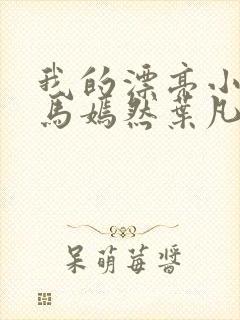 我的漂亮小
马嫣然葉凡
呆萌莓醬